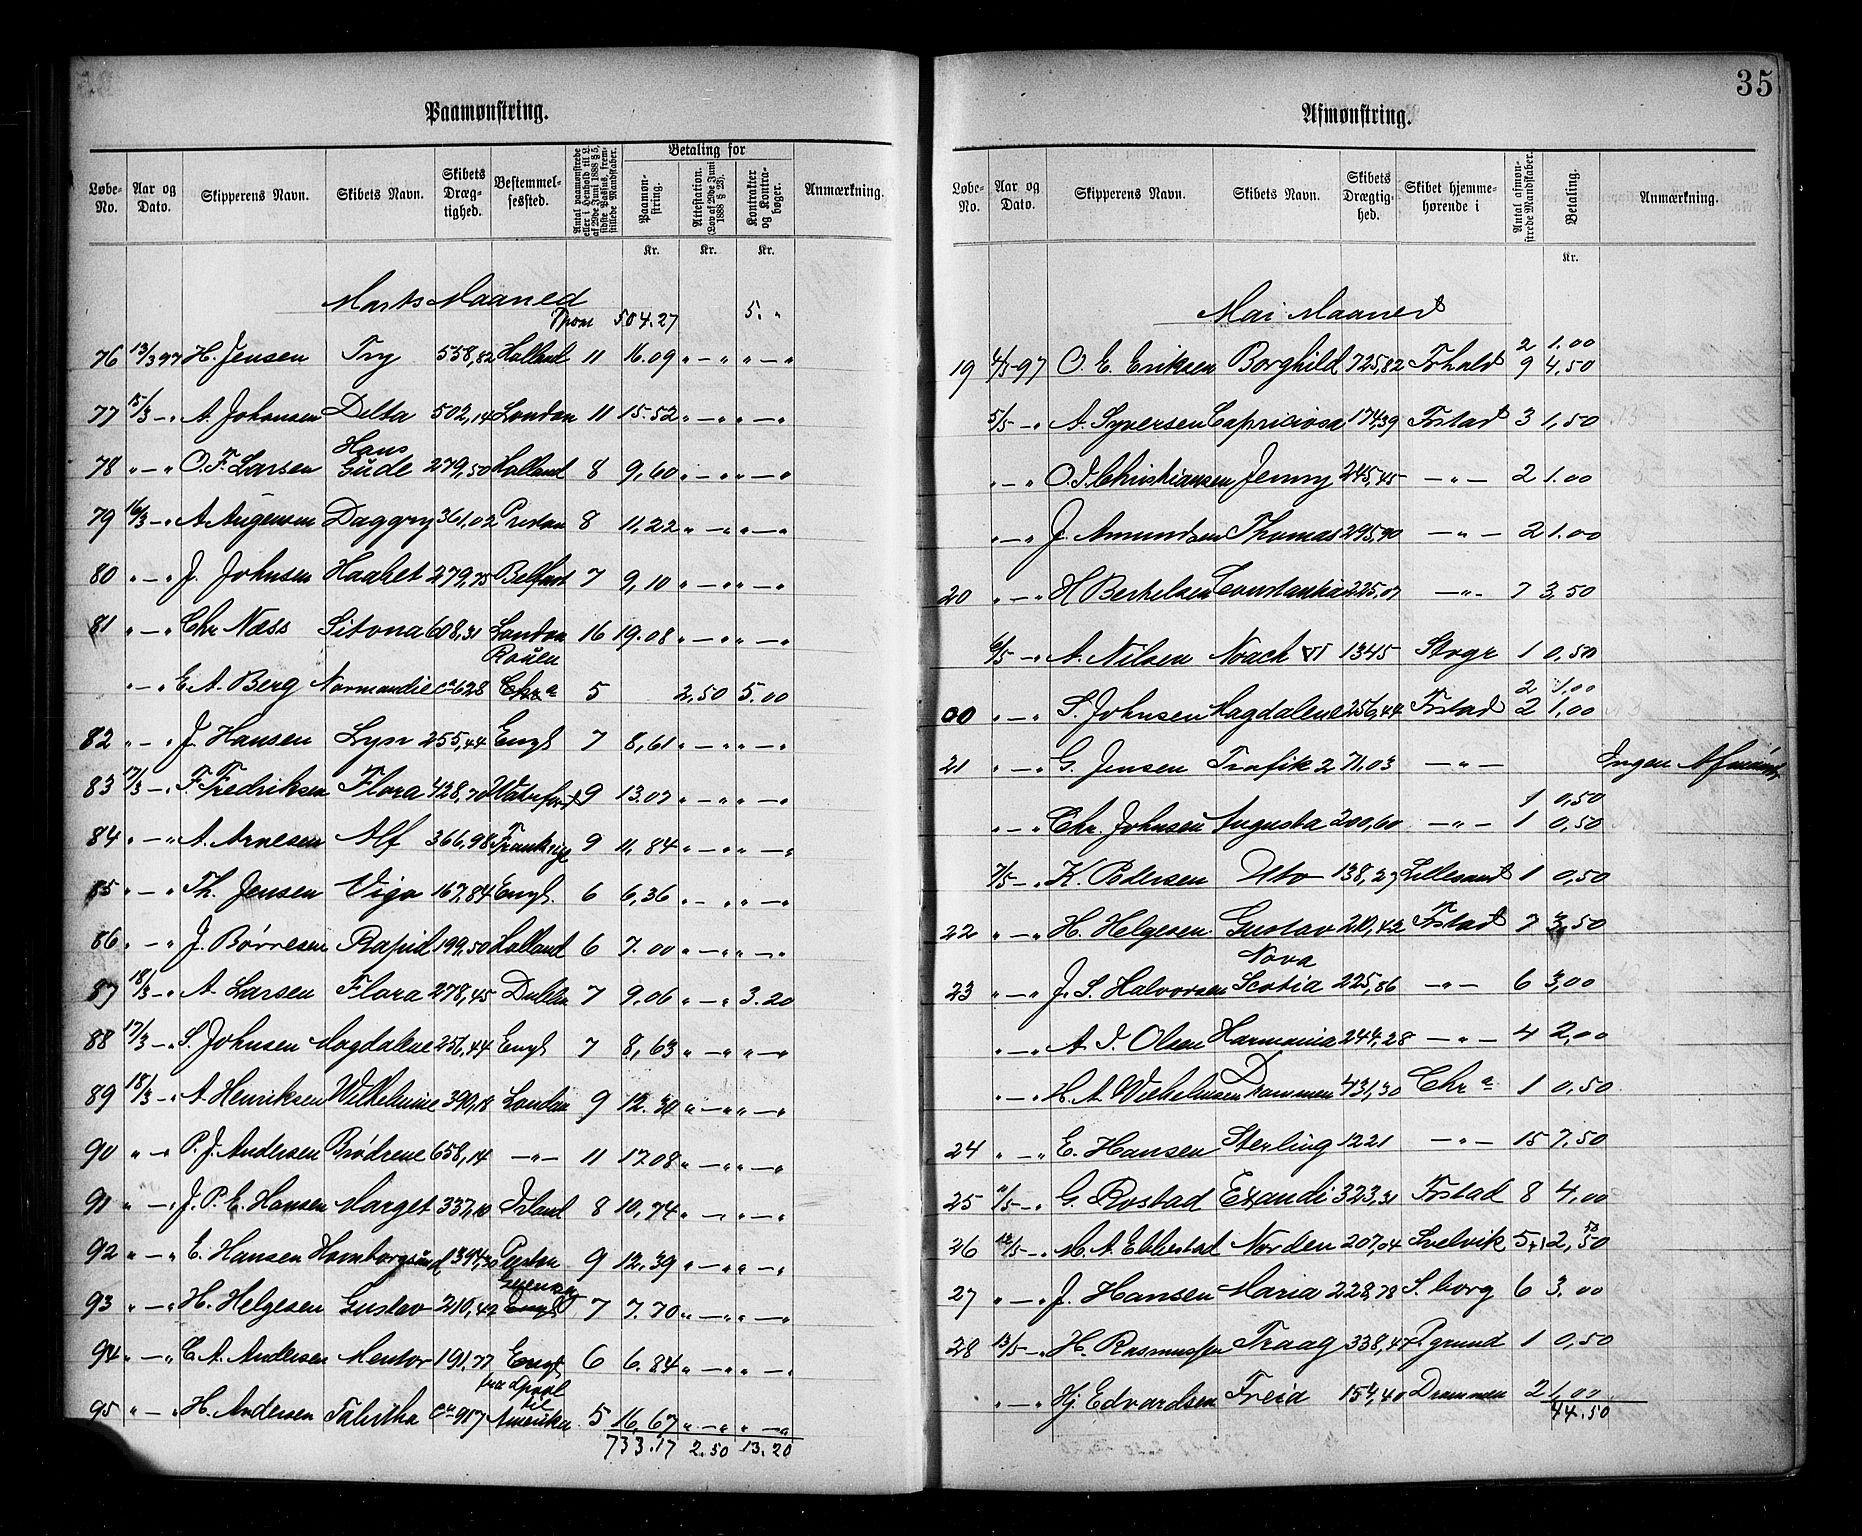 35
Paamønstring.
Løbe-No. Aar og Dato. Skipperens Navn. Skibets Navn. Skibets Dræg-tighed. Bestemmel-sessted. Antal paamønstrede eller i Henhold til L. af 29de Juni 1888 § 5, sidste Passus, frem-stillede Mandskaber. Betaling for Paamøn-string. Attestation. (Lov af 29de Juni 1888 § 23). Kontrakter og Kontra-bøger. Anmærkning.
Kr. Kr. Kr.
Marts Maaned
504.27 5. "
76 13/3 97 H. Jensen Try 558,82 Holland 11 16.09 " — " " — "
77 15/3 — " A. Johansen Delta 502,14 London 11 15.52 " — " " — "
Hans
78 " — " O. F. Larsen Gude 279,50 Holland 8 9,60 " — " " — "
79 16/3 — " A. Augenson Daggry 361,02 Preston 8 11,22 " — " " — "
80 " — " J. Johnsen Haabet 279,75 Belfast 7 9,10 " — " " — "
81 " — " Chr. Næss Sitona 608,31 London 16 19.08 " — " " — "
Rouen
" — " E. A. Berg Normandie ca 628 Chra 5 2,50 5.00
82 " — " J. Hansen Lyn 255,44 Engl 7 8,61 " — " " — "
83 17/3 — " F. Fredriksen Flora 428,70 Waterford 9 13.07 " — " " — "
84 " — " A. Arnesen Alf 366,98 Frankrige 9 11,84 " — " " — "
85 " — " Th. Jensen Viga 167,84 Engl. 6 6,36 " — " " — "
86 " — " J. Børresen Rapid 199,50 Holland 6 7.00 " — " " — "
87 18/3 — " A. Larsen Flora 278,45 Dublin 7 9.06 " — " 3.20
88 17/3 — " S. Johnsen Magdalene 256,44 Engl 7 8,63 " — " " — "
89 18/3 — " A. Henriksen Wilhelmine 390,18 London 9 12.30 " — " " — "
90 " — " P. J. Andersen Brødrene 658,14 — " — 11 17.08 " — " " — "
91 " — " J. P. E. Hansen Marget 337,10 Irland 8 10,74 " — " " — "
92 " — " E. Hansen Homborgsund 394,30 Preston 9 12.39 " — " " — "
93 " — " H. Helgesen Gustav 210,42 Engl 7 7.70 " — " " — "
94 " — " C. A. Andersen Mentor 191,77 Engl 6 6.84 " — " " — "
fra
til
95 " — " H. Andersen Tabitha ca 957 Amerika 5 16,67 " — " " — "
733.17 2.50 13.20
Afmønstring.
Løbe-No. Aar og Dato. Skipperens Navn. Skibets Navn. Skibets Drægtig-hed. Skibet hjemme-hørende i Antal afmøn-strede Mandskaber. Betaling. Anmærkning.
Kr.
Mai Maaned
2 1.00
19 4/5-97 O. E. Eriksen Borghild 725,82 Frhald 9 4,50
5/5 — " A. Syversen Capricioca 174,39 Frstad 3 1,50
" — " O. J. Christiansen Jenny 245,45 — " — 2 1.00
" — " J. Amundsen Thomas 295,90 — " — 2 1.00
20 " — " H. Berthelsen Constantia 225,07 — " — 7 3,50
6/5 — " A. Nilsen Noach VI 1345 Stvgr 1 0,50
2 1.00
00 " — " S. Johnsen Magdalene 256,44 Frstad 2 1,00
21 " — " G. Jensen Trafik 271,03 — " — Ingen Afmønst.
1 0,50
" — " Chr. Johnsen Augusta 200,60 — " — 1 0,50
7/5 — " K. Pedersen Uto 138,27 Lillesand 1 0,50
22 " — " H. Helgesen Gustav 210,42 Frstad 7 3,50
Nova
23 " — " J. S. Halvorsen Scotia 225,86 — " — 6 3,00
" — " A. J. Olsen Harmonia 244,28 — " — 4 2,00
" — " H. A. Wilhelmsen Drammen 431,30 Chr a 1 0,50
24 " — " E. Hansen Sterling 1221 — " — 15 7,50
25 11/5 — " G. Rostad Exandi 323,31 Frstad 8 4,00
26 12/5 — " M. A. Ebbestad Norden 207,04 Svelvik 5+1 2,50 50
27 " — " J. Hansen Maria 228,78 S.borg 6 3.00
28 13/5 — " H. Rasmussen Traag 338,47 P.grund 1 0,50
" — " Hj. Edvardsen Freia 154,40 Drammen 2 1,00
44.50